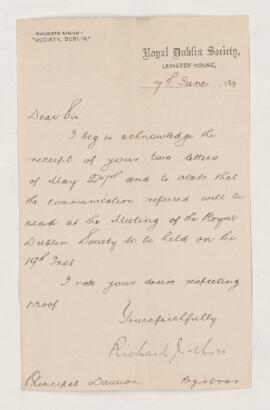 TELEGRAPHIC ADDRESS—
"SOCIETY, DUBLIN."
Royal Dublin Society,
LEINSTER HOUSE,
7th June 189
Dear Sir
I beg to acknowledge the
receipt of your two letters
of May 27th and to state that
the communication referred will be
read at the Meeting of the Royal
Dublin Society to be held on the
19th Inst
I note your desire respecting
proof
Yours faithfully
Richard J. Moss
Registrar
Principal Dawson